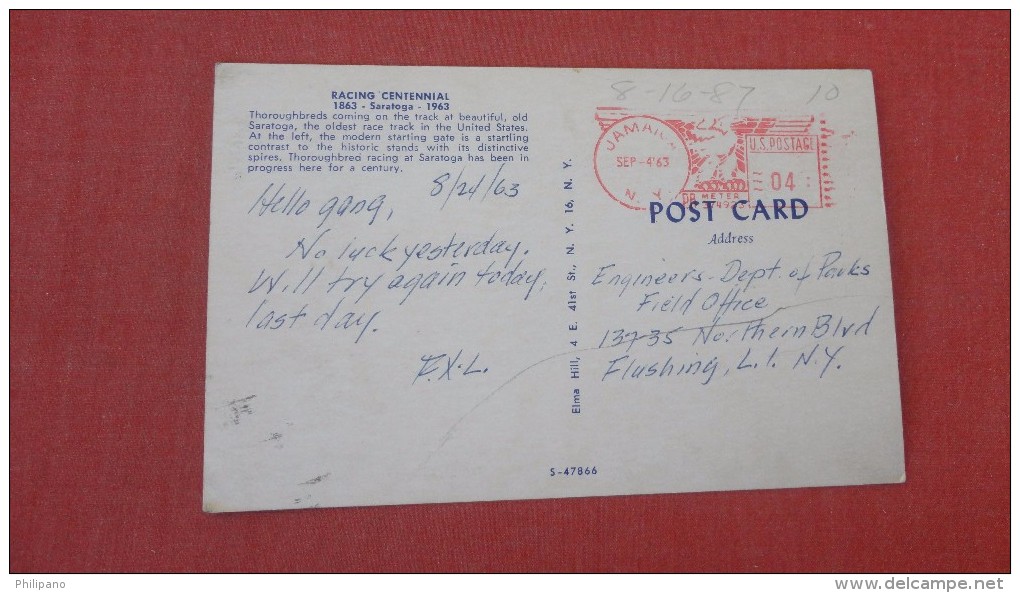 RACING CENTENNIAL
1863 - Saratoga - 1963
Thoroughbreds coming on the track at beautiful, old
Saratoga, the oldest race track in the United States.
At the left, the modern starting gate is a startling
contrast to the historic stands with its distinctive
spires. Thoroughbred racing at Saratoga has been in
progress here for a century.
8/24/63
Hello gang,
No luck yesterday.
Will try again today,
last day.
F.X.L.
Elma Hill, 4 E. 41st St., N. Y. 16, N. Y.
S-47866
8-16-87 10
JAMAICA
SEP-4'63
N. Y.
U.S. POSTAGE
04
METER
POST CARD
Address
Engineers-Dept. of Parks
Field Office
13735 Northern Blvd
Flushing, L.I. N.Y.
Philipano
www.delcampe.net